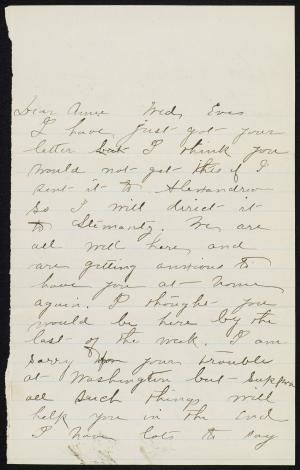 Dear Anna Wed, Eves
I have just got your
letter but I think you
would not get this if I
sent it to Alexandria
So I will direct it
to . We are
all well here and
are getting anxious to
have you at home
again. I thought you
would be here by the
last of the week. I am
sorry for your trouble
at Washington but suppose
all such things will
help you in the end
I have lots to say